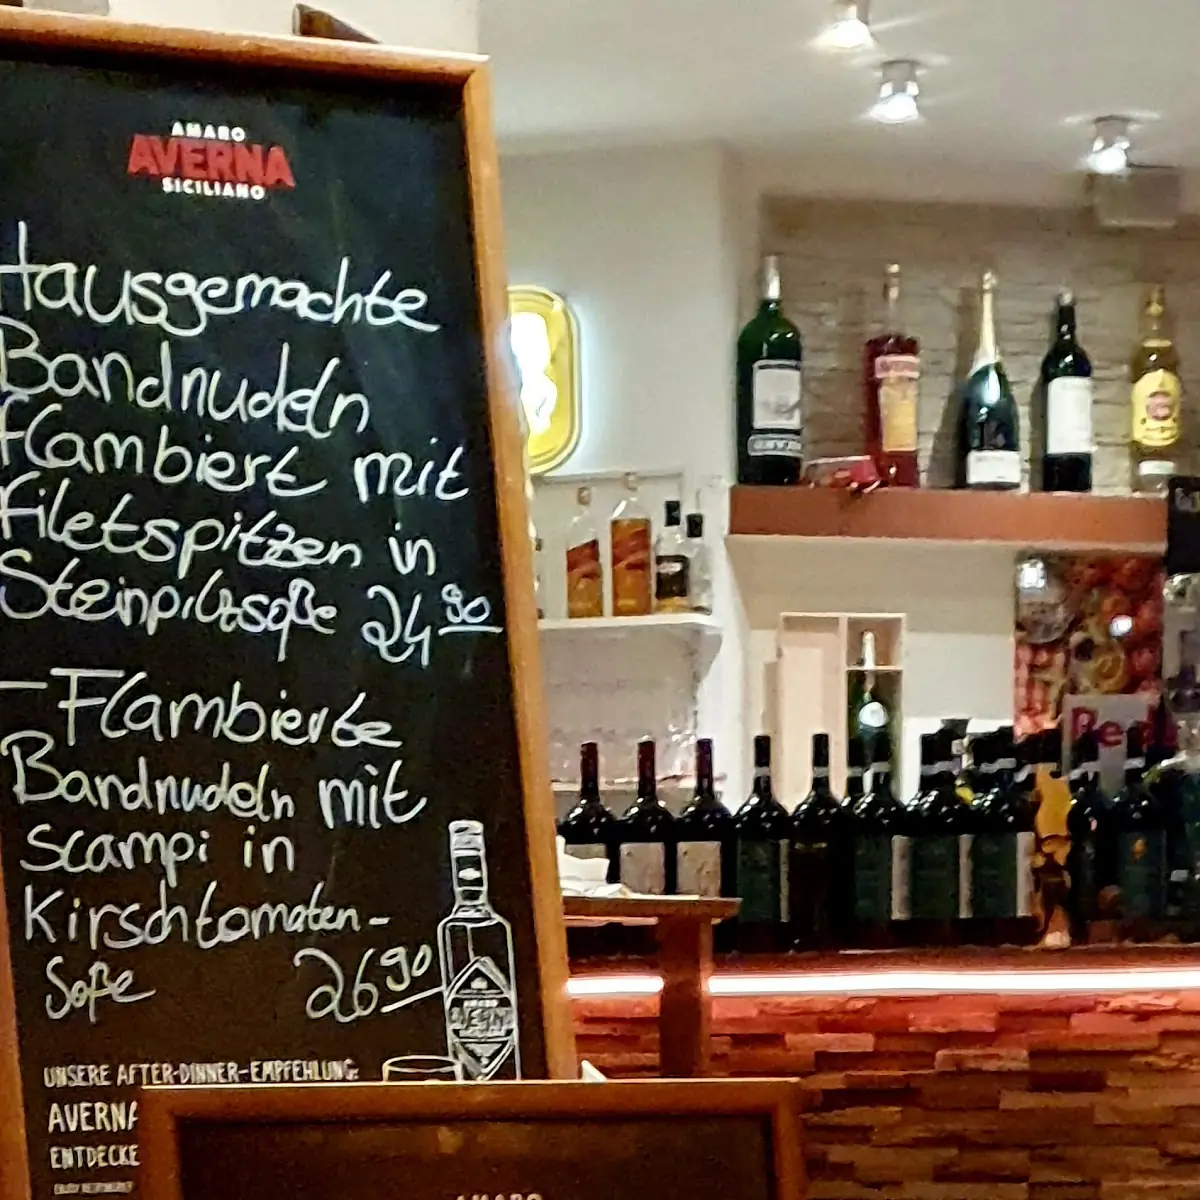 AMARO
AVERNA
SICILIANO
Hausgemachte
Bandnudeln
flambiert mit
filetspitzen in
Steinpilzsoße 24 90
- Flambierte
Bandnudeln mit
scampi in
Kirschtomaten-
Soße 26 90
UNSERE AFTER-DINNER-EMPFEHLUNG:
AVERNA
ENTDECKE
AMARO